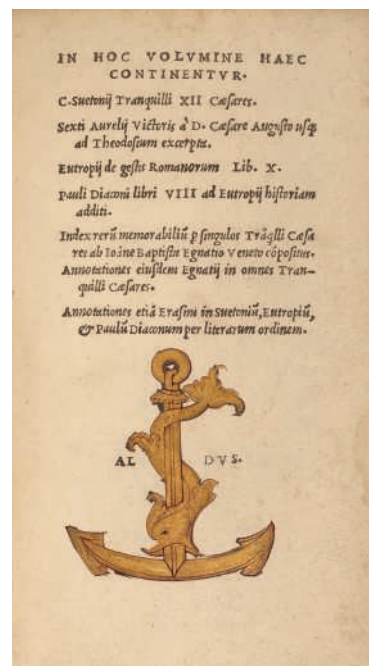 IN HOC VOLVMINE HAEC
CONTINENTVR.
C. Suetonij Tranquilli XII Cæsares.
Sexti Aurelij Victoris à D. Cæsare Augusto usq;
ad Theodosium excerpta.
Eutropij de gestis Romanorum Lib. X.
Pauli Diaconi libri VIII ad Eutropij historiam
additi.
Index rerū memorabiliū p singulos Trāqlli Cæsa
res ab Ioāne Baptista Egnatio Veneto cōpositus.
Annotationes eiusdem Egnatij in omnes Tran-
quilli Cæsares.
Annotationes etiā Erasmi in Suetoniū, Eutropiū,
& Paulū Diaconum per literarum ordinem.
AL DVS.